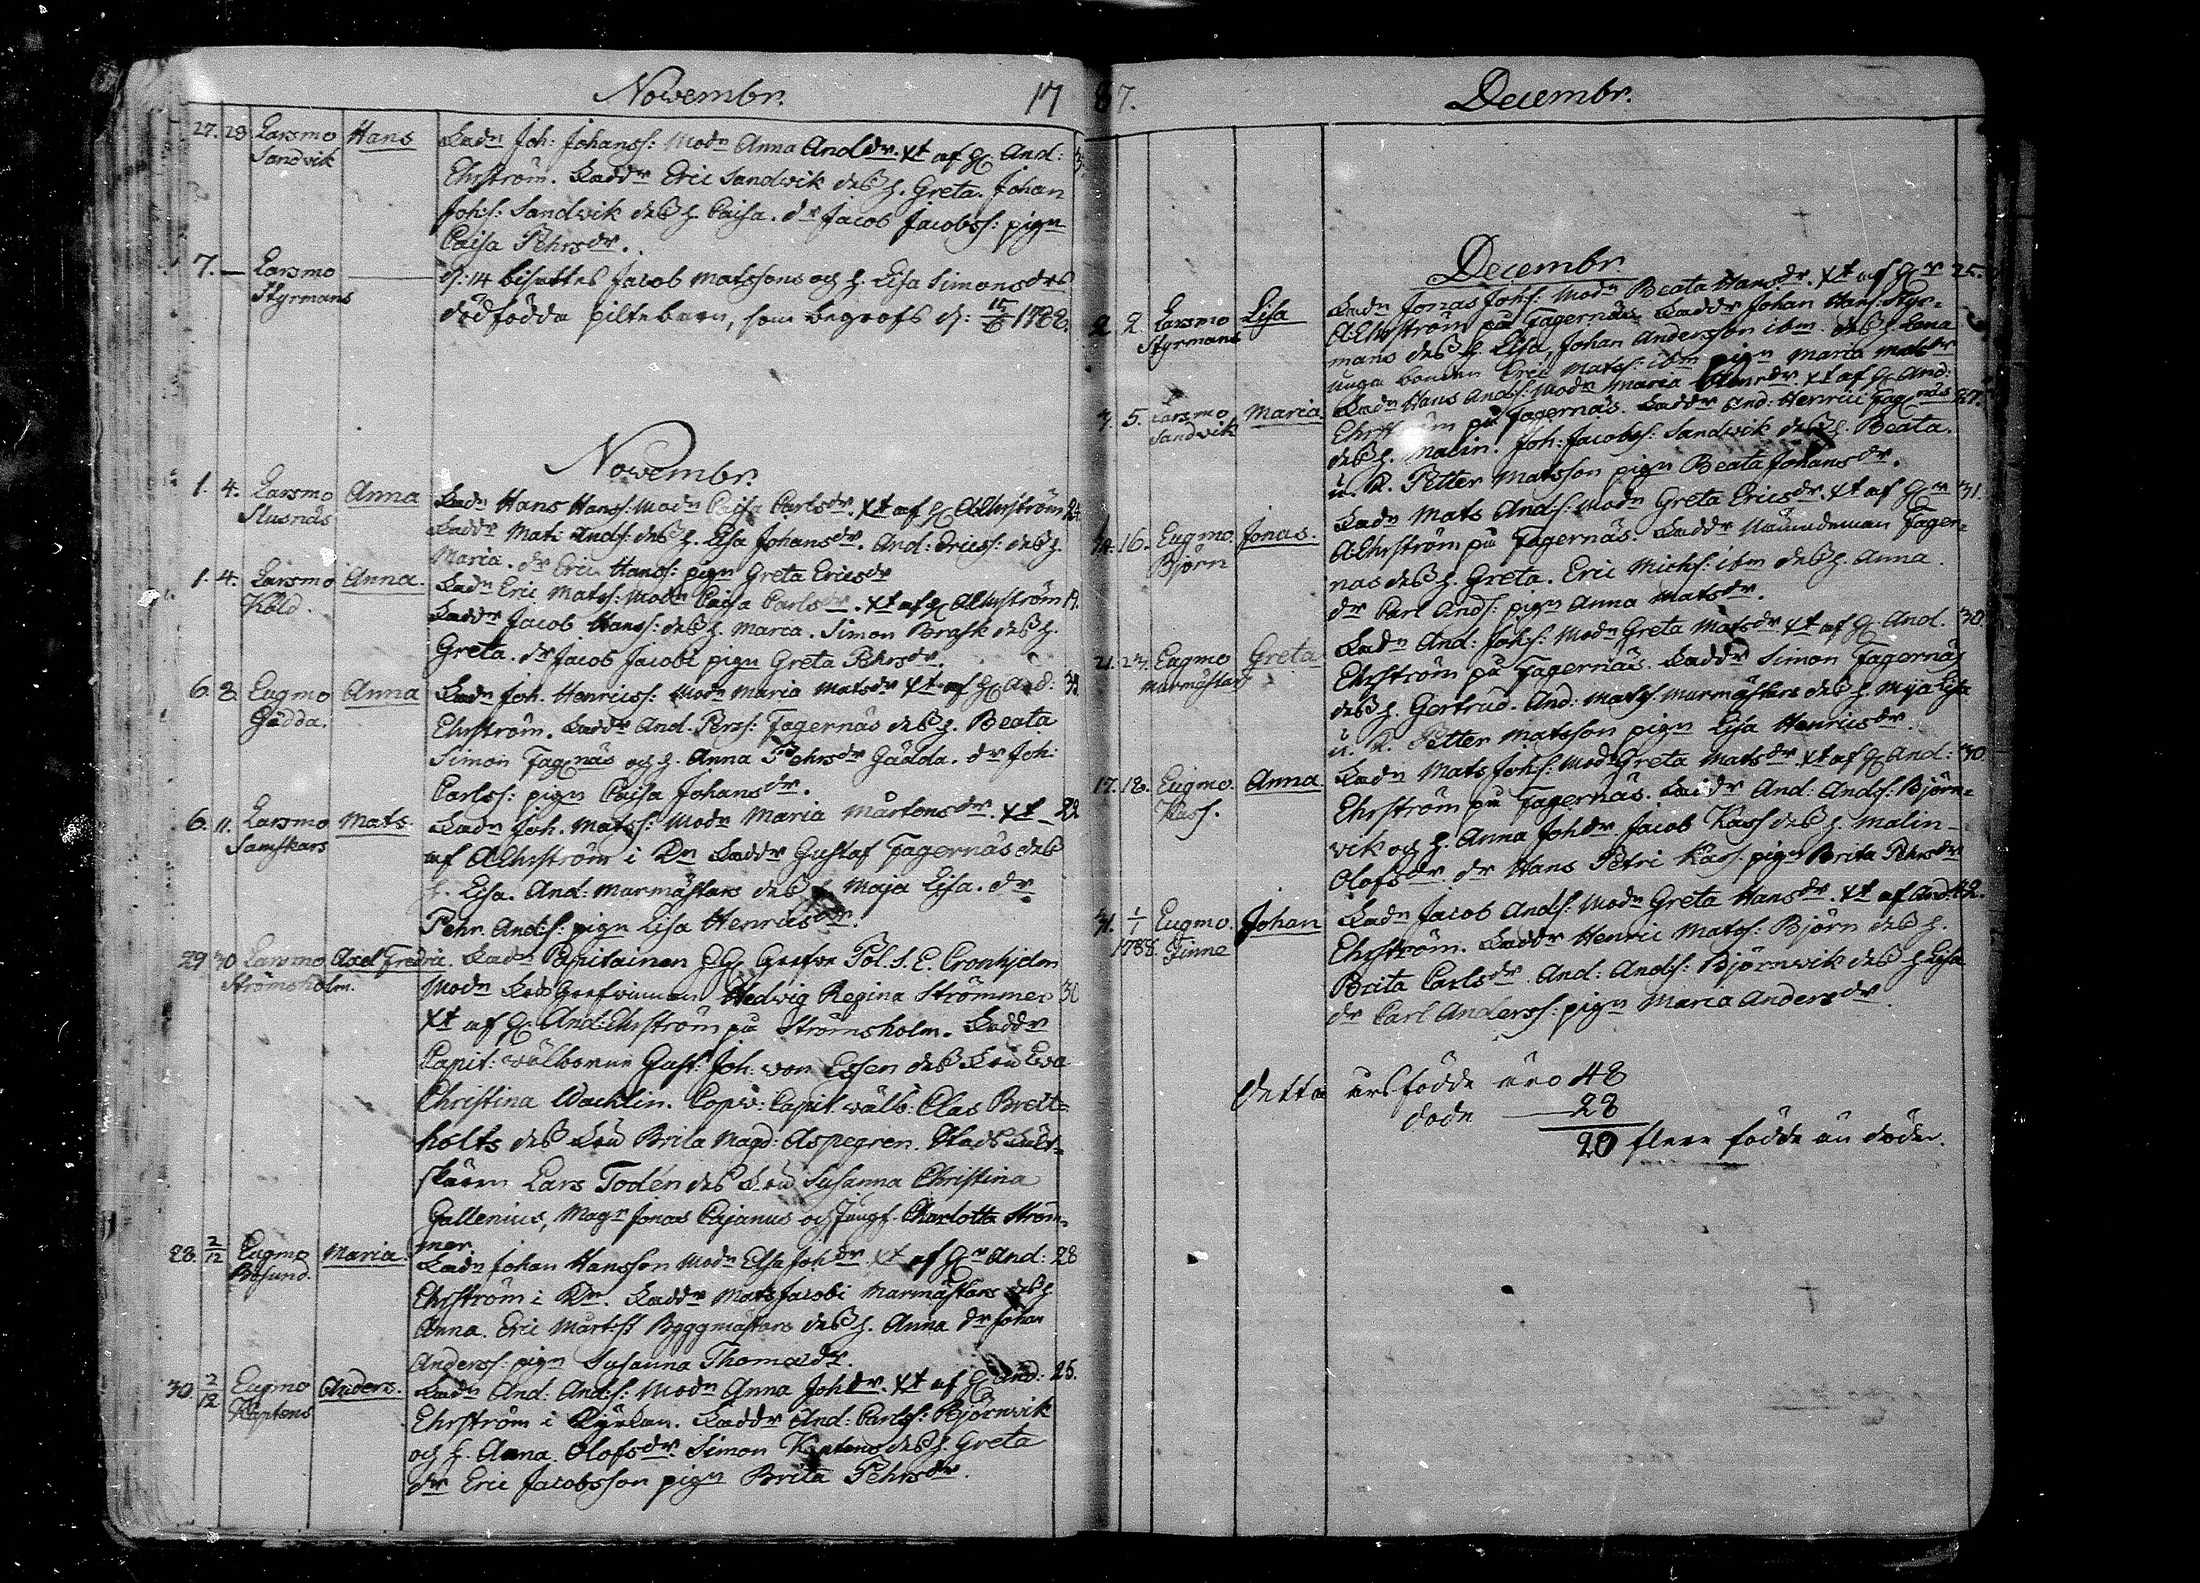 Novembr. 17
27. 28 Larsmo Sandvik Hans Fadn Joh: Johanss: Modn Anna Anddr. Xt af H. And:
Ehrström. Faddr Eric Sandvik dess h. Greta. Johan
Johs: Sandvik dess h. Caisa. dr Jacob Jacobss: pign
Caisa Pehrsdr.
7. — Larsmo Styrmans d: 14 bisattes Jacob Matssons och h. Lisa Simonsdrs
dödfödda piltebarn, som begrofs d: 1788.
Novembr.
1. 4. Larsmo Slusnäs Anna Fadn Hans Hanss: Modn Caisa Carlsdr. Xt af H. A Ehrström 24.
Faddr Mat: Ands: dess h. Lisa Johansdr. And: Ericss: dess h.
Maria. dr Eric Hanss: pign Greta Ericsdr
1. 4. Larsmo Köld. Anna. Fadn Eric Matss: Modn Caisa Carlsdr. Xt af H. A Ehrström 19.
Faddr Jacob Hanss: dess h. Maria. Simon Brask dess h.
Greta. dr Jacob Jacobi pign Greta Pehrsdr.
6. 8. Eugmo Gädda. Anna Fadn Joh. Henricss: Modn Maria Matsdr Xt af H. And:
Ehrström. Faddr And. Perss: Fagernäs dess h. Beata
Simon Fagnäs och h. Anna Pehrsdr Gädda. dr Joh:
Carlss: pign Caisa Johansdr.
6. 11. Larsmo Samskars Mats. Fadn Joh. Matss: Modn Maria Mårtensdr. Xt
af A Ehrström i Kn Faddr Gustaf Fagernäs dess
h. Lisa. And: Murmästars dess h Maja Lisa. dr
Pehr Ands: pign Lisa Henricsdr.
29 30 Larsmo Strömsholm. Axel Fredric. Fadn Capitainen Grefve Pol. S. E. Cronhjelm
Modn Grefvinnan Hedwig Regina Strömmer 30
Xt af H. And: Ehrström på Strömsholm. Faddr
Capit: wälborne Gust: Joh: von Essen dess Fru Eva
Christina Wacklin. Capit. wälb: Clas Breit=
holts dess Fru Brita Magd: Aspegren.
Lars Todén dess Fru Susanna Christina
Gallenius, Magr Jonas Cajanus och Jungf. Charlotta Ström=
mer.
28. 2/12 Eugmo Bosund. Maria. Fadn Johan Hansson Modn Elsa Johdr Xt af Hr And: 28
Ehrström i Kn. Faddr Mats Jacobi Murmästars dess h
Anna. Eric Mårtss Byggmästars dess h. Anna dr Johan
Anderss: pign Susanna Thomædr.
30. 2/12 Eugmo Kaptens Anders. Fadn And: Ands: Modn Anna Johdr. Xt af H. And: 25.
Ehrström i Kyrkan. Faddr And: Carlss: Björnvik
och h. Anna Olofsdr. Simon Kaptens dess h. Greta
dr Eric Jacobsson pign Brita Pehrsdr.
87. Decembr.
Decembr.
2. 2. Larsmo Styrmans Lisa Fadn Jonas Johs: Modn Beata Hansdr. Xt af Hr 25.
A: Ehrström på Fagernäs. Faddr Johan Hans: Styr=
mans dess h. Lisa, Johan Andersson ibm dess h. Lena
unga bonden Eric Matss: ibm pign Maria Matsdr
3. 5. Larsmo Sandvik Maria. Fadn Hans Ands: Modn Maria Henrdr. Xt af H. And: 27.
Ehrström på Fagernäs. Faddr And: Henrici Fagnäs
dess h. Malin. Joh: Jacobss: Sandvik dess h. Beata.
u. K. Petter Matsson pign Beata Johansdr.
14. 16. Eugmo. Björn Jonas. Fadn Mats Ands: Modn Greta Ericsdr. Xt af Hr 31.
A: Ehrström på Fagernäs. Faddr Nämndeman Fager=
näs dess h. Greta. Eric Michs: ibm dess h. Anna.
dr Carl Ands: pign Anna Matsdr.
21. 23. Eugmo Murmästars Greta Fadn And: Johs: Modn Greta Matsdr Xt af H. And. 30.
Ehrström på Fagernäs. Faddr Simon Fagernäs
dess h. Gertrud. And: Matss: Murmästars dess h. Maja Lisa
u. K. Petter Matsson pign Lisa Henricsdr.
17. 18. Eugmo. Kass. Anna. Fadn Mats Johs: Modn Greta Matsdr Xt af H. And: 30.
Ehrström på Fagernäs. Faddr And: Ands: Björn=
vik och h. Anna Johdr. Jacob Kass dess h. Malin
Olofsdr. dr Hans Petri Kass. pign Brita Pehrsdr
31. 1/1 1788. Eugmo. Finne Johan Fadn Jacob Ands: Modn Greta Hansdr. Xt af And: 42.
Ehrström. Faddr Henric Matss: Björn dess h.
Brita Carlsdr. And: Ands: Björnvik dess h. Lisa
dr Carl Anderss: pign Maria Andersdr.
Detta års födde äro 48
döde — 28
20 flere födde än döde.